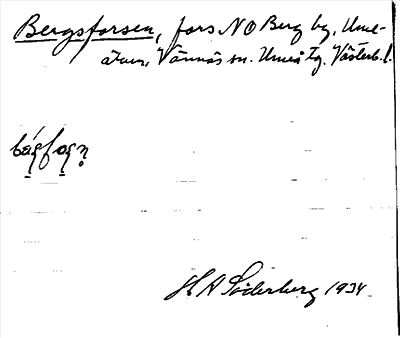 Bergsforsen, fors NO Berg by, Ume-
älven, Vännäs sn. Umeå tg. Västerb. l.
H A Söderberg 1934